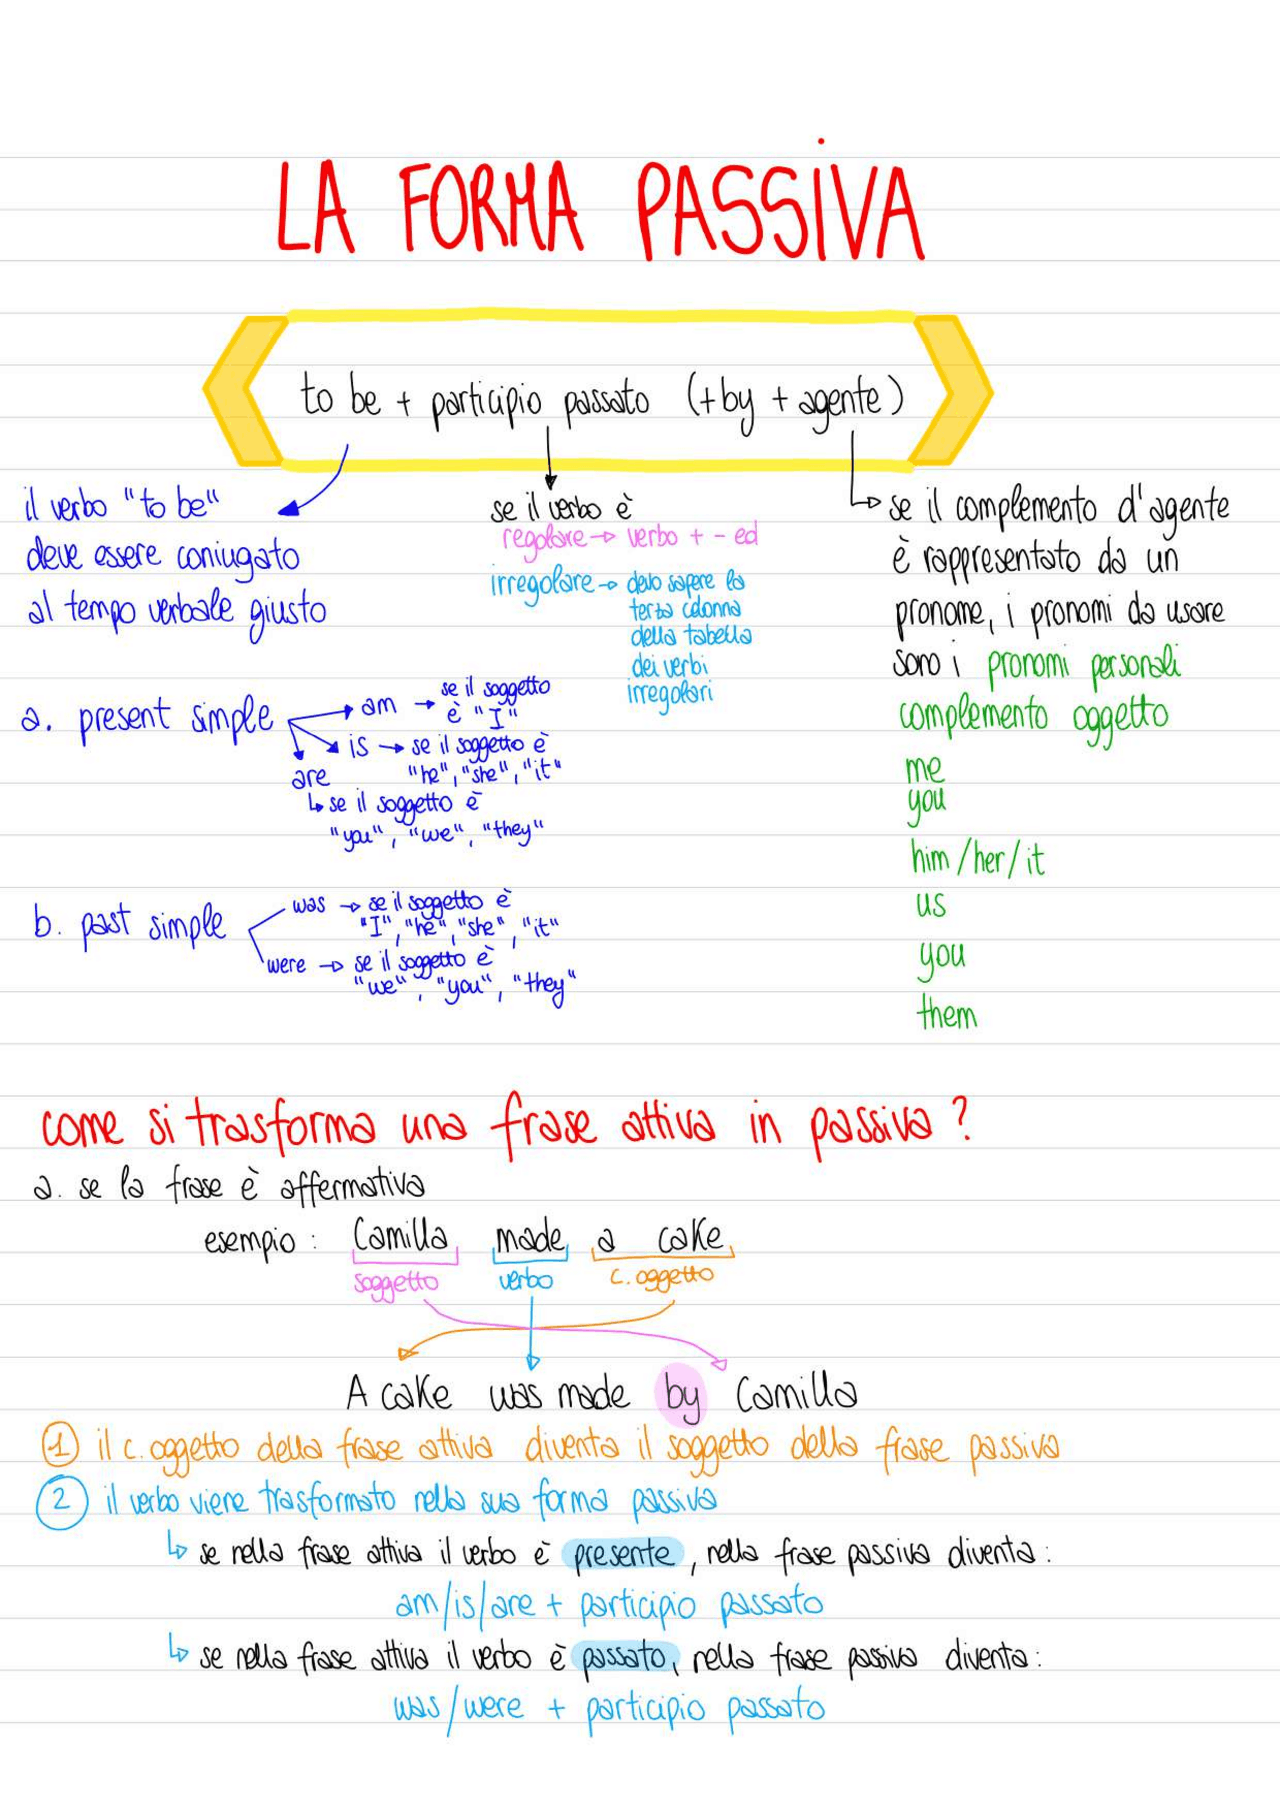 LA FORMA PASSIVA
to be + participio passato (+by + agente)
il verbo "to be"
deve essere coniugato
al tempo verbale giusto
se il verbo è
regolare → verbo + - ed
irregolare → devo sapere la
terza colonna
della tabella
dei verbi
irregolari
se il complemento d'agente
è rappresentato da un
pronome, i pronomi da usare
sono i pronomi personali
complemento oggetto
me
you
him/her/it
us
you
them
a. present simple
am → se il soggetto
è "I"
is → se il soggetto è
"he", "she", "it"
are
↳ se il soggetto è
"you", "we", "they"
b. past simple
was → se il soggetto è
"I", "he", "she", "it"
were → se il soggetto è
"we", "you", "they"
come si trasforma una frase attiva in passiva?
a. se la frase è affermativa
esempio: Camilla made a cake
soggetto verbo c. oggetto
A cake was made by Camilla
1 il c. oggetto della frase attiva diventa il soggetto della frase passiva
2 il verbo viene trasformato nella sua forma passiva
↳ se nella frase attiva il verbo è presente, nella frase passiva diventa:
am/is/are + participio passato
↳ se nella frase attiva il verbo è passato, nella frase passiva diventa:
was/were + participio passato